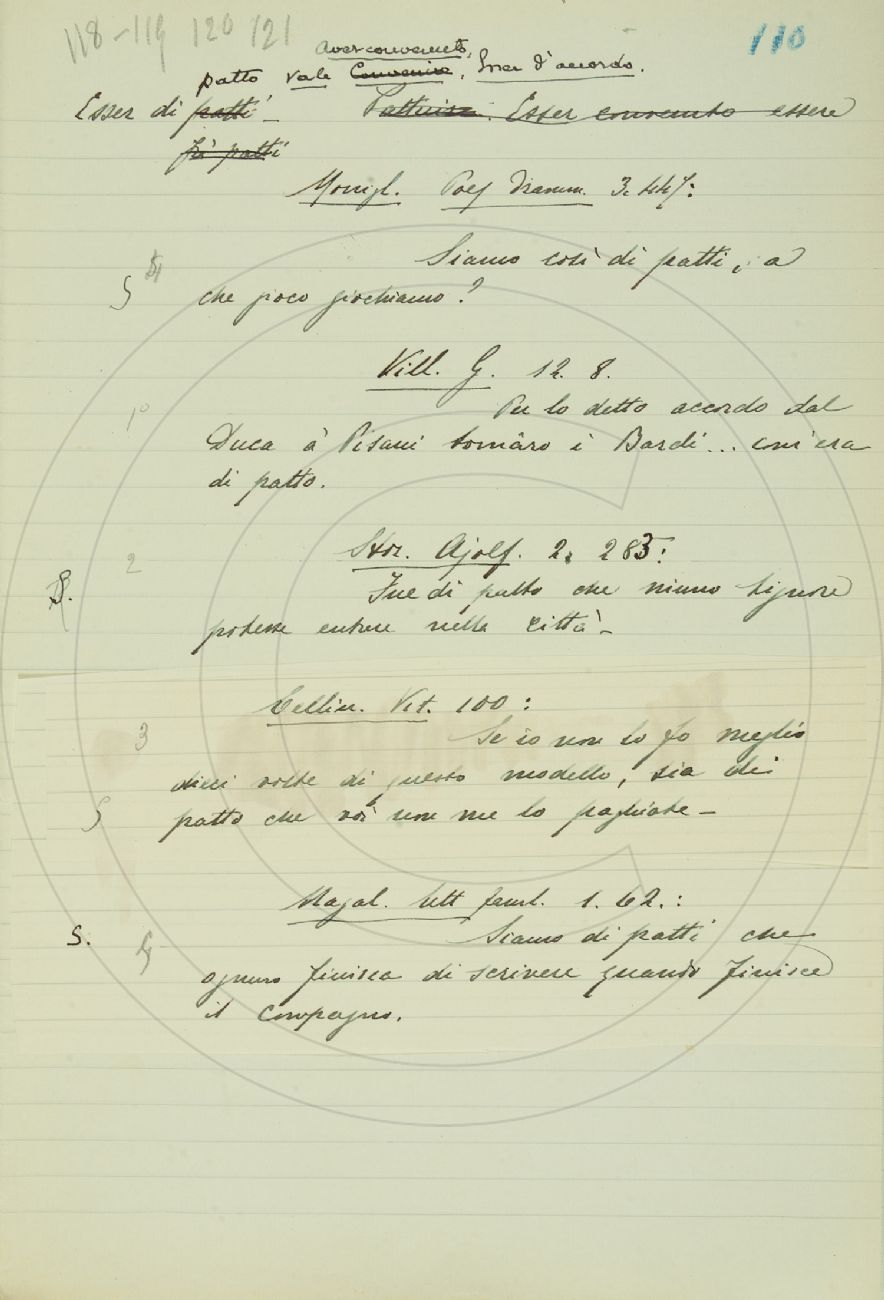 118-119 120 121
110
Aver convenuto,
patto vale Convenire, Esser d'accordo.
Esser di patti - Pattuire. Esser convenuto essere
fra patti
Monigl. Poes dramm. 3. 447:
Siamo così di patti, a
§ 5
che poco giochiamo?
Vill. G. 12. 8.
1°
Per lo detto accordo dal
Duca a' Pisani tornaro i Bardi... com'era
di patto.
Stor. Ajolf. 2. 283:
2
S.
Fue di patto che niuno signore
potesse entrare nella città -
Cellin. Vit. 100:
3
Se io non lo fo meglio
dieci volte di questo modello, sia di
S
patto che voi non me lo paghiate -
Magal. Lett faml. 1. 62.:
S. 4
Siamo di patti che
ognuno finisca di scrivere quando finisce
il compagno.